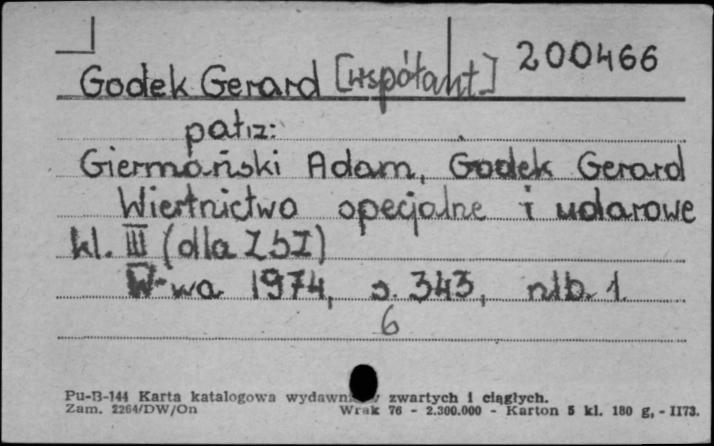 200466
Godek Gerard [współaut.]
patrz:
Giermański Adam, Godek Gerard
Wiertnictwo specjalne i udarowe
kl. III (dla ZSZ)
W-wa 1974, s. 343, nlb. 1
6
Pu-B-144 Karta katalogowa zwartych i ciągłych.
Zam. 2264/DW/On Wrak 76 - 2.300.000 - Karton 5 kl. 180 g, - II73.